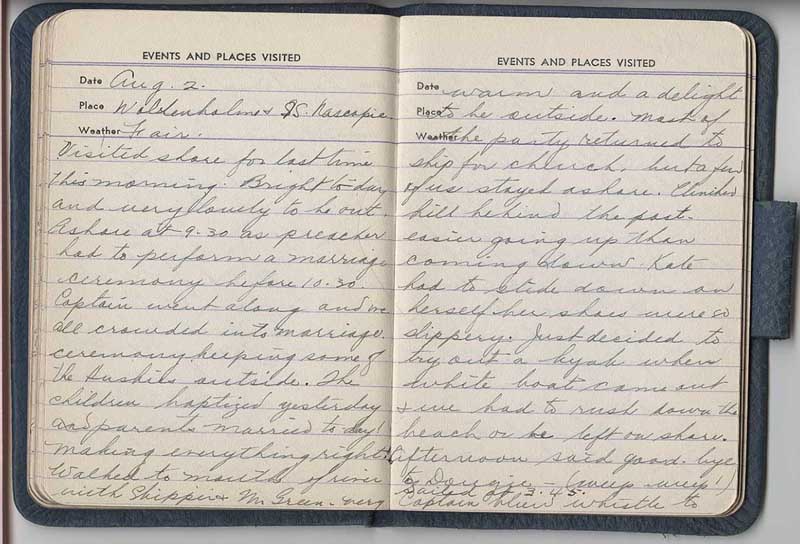 EVENTS AND PLACES VISITED
Date Aug. 2.
Place Woldenholme & SS. Nascopie
Weather Fair.
Visited shore for last time
this morning. Bright to-day
and very lovely to be out.
Ashore at 9-30 as preacher
had to perform a marriage
ceremony before 10.30.
Captain went along and we
all crowded into marriage.
ceremony keeping some of
the Huskies outside. The
children baptized yesterday
and parents married to day!
Making everything right.
Walked to mouth of river
with Skipper & Mr Green. very
EVENTS AND PLACES VISITED
Date warm and a delight
Place to be outside. Most of
Weather the party returned to
ship for church, but a few
of us stayed ashore. Climbed
hill behind the post-
easier going up than
coming down. Kate
had to slide down on
herself her shoes were so
slippery. Just decided to
try out a kyak when
white boat came out
& we had to rush down the
beach or be left on shore.
Afternoon said good-bye
to Dougie - (weep weep!)
Sailed at 3.45.
Captain blew whistle to